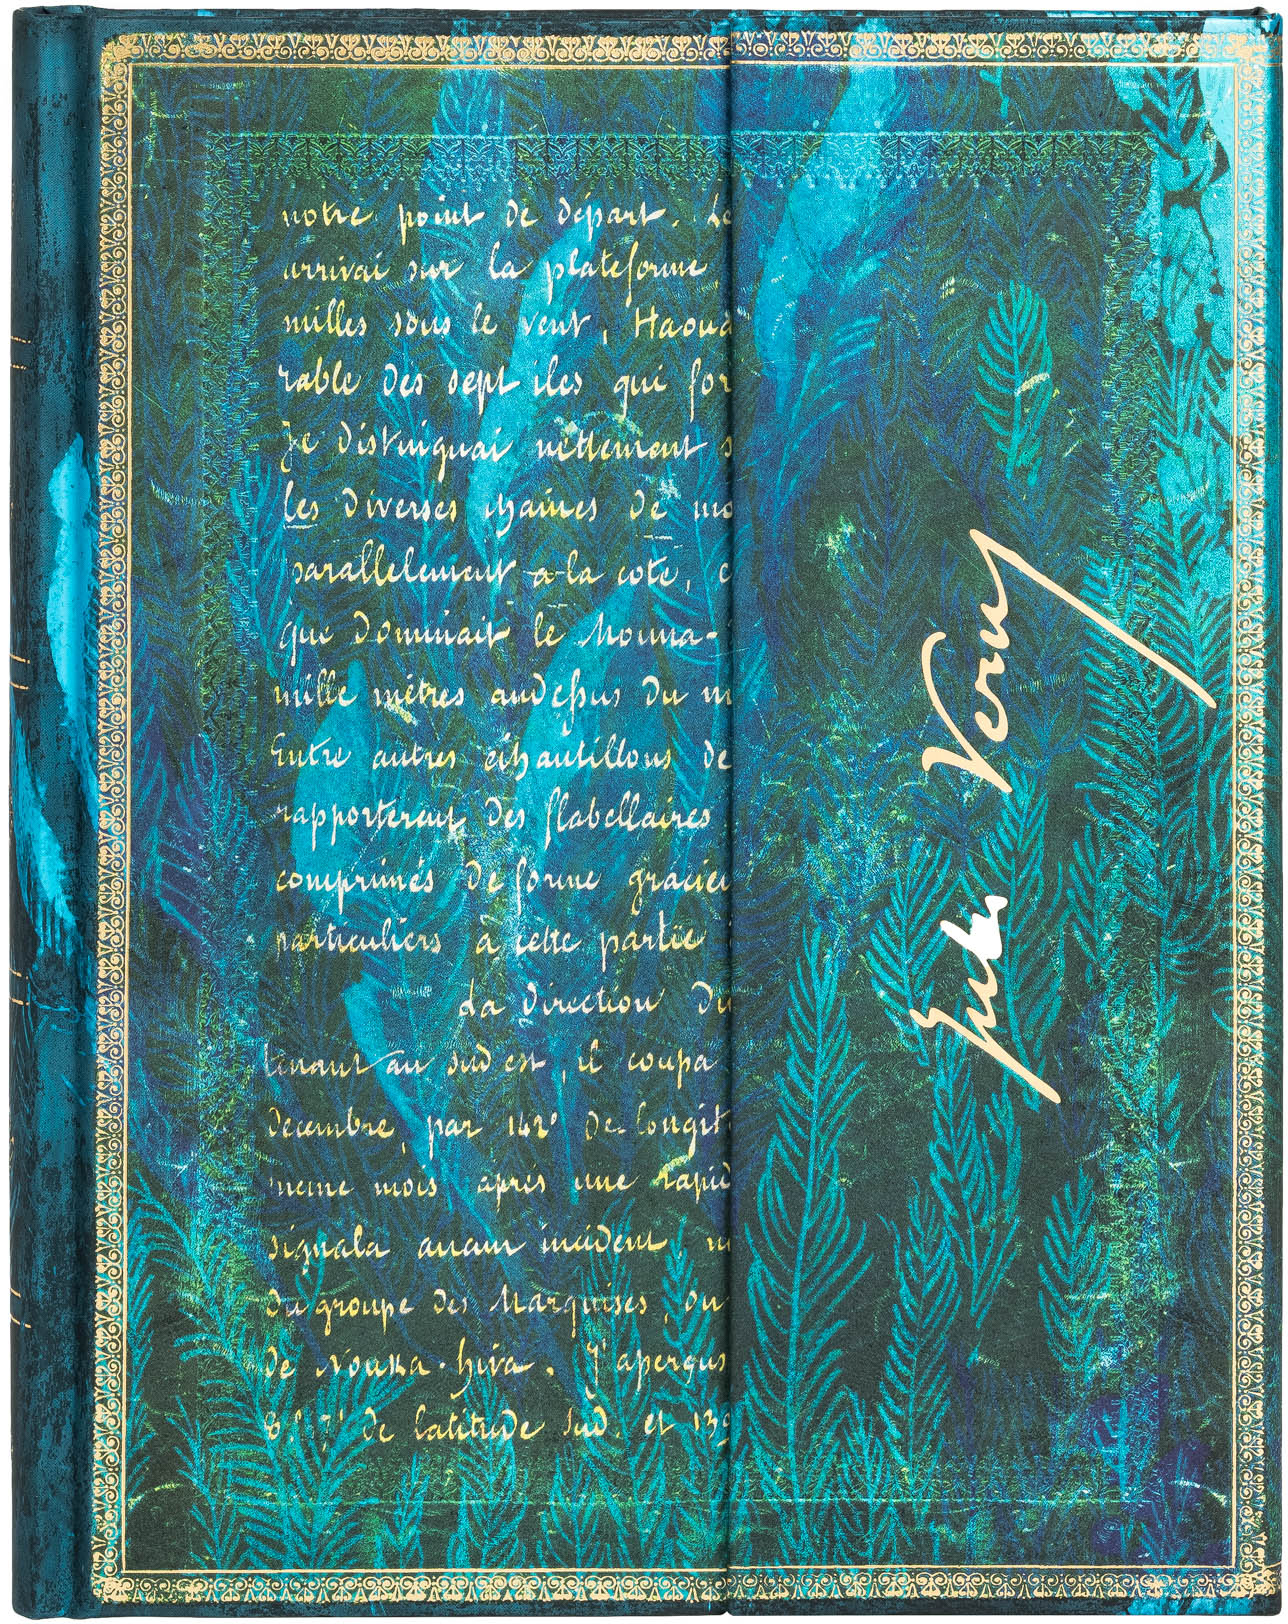 notre point de départ. Le
arrivai sur la plateforme
milles sous le vent, Haoua
rable des sept iles qui for
Je distinguai nettement s
les diverses chaines de mo
parallelement à la cote, e
que dominait le Mouna-
mille mètres audessus du m
Entre autres échantillons de
rapporterent des flabellaires
comprimés de forme gracieu
particuliers à cette partie
La direction du
tenant au sud est, il coupa
Decembre, par 142° de longit
meme mois après une rapid
signala aucun incident, n
du groupe des Marquises, ou
de Nouka-hiva. J'aperçus
de latitude sud. et 139
Jules Verne